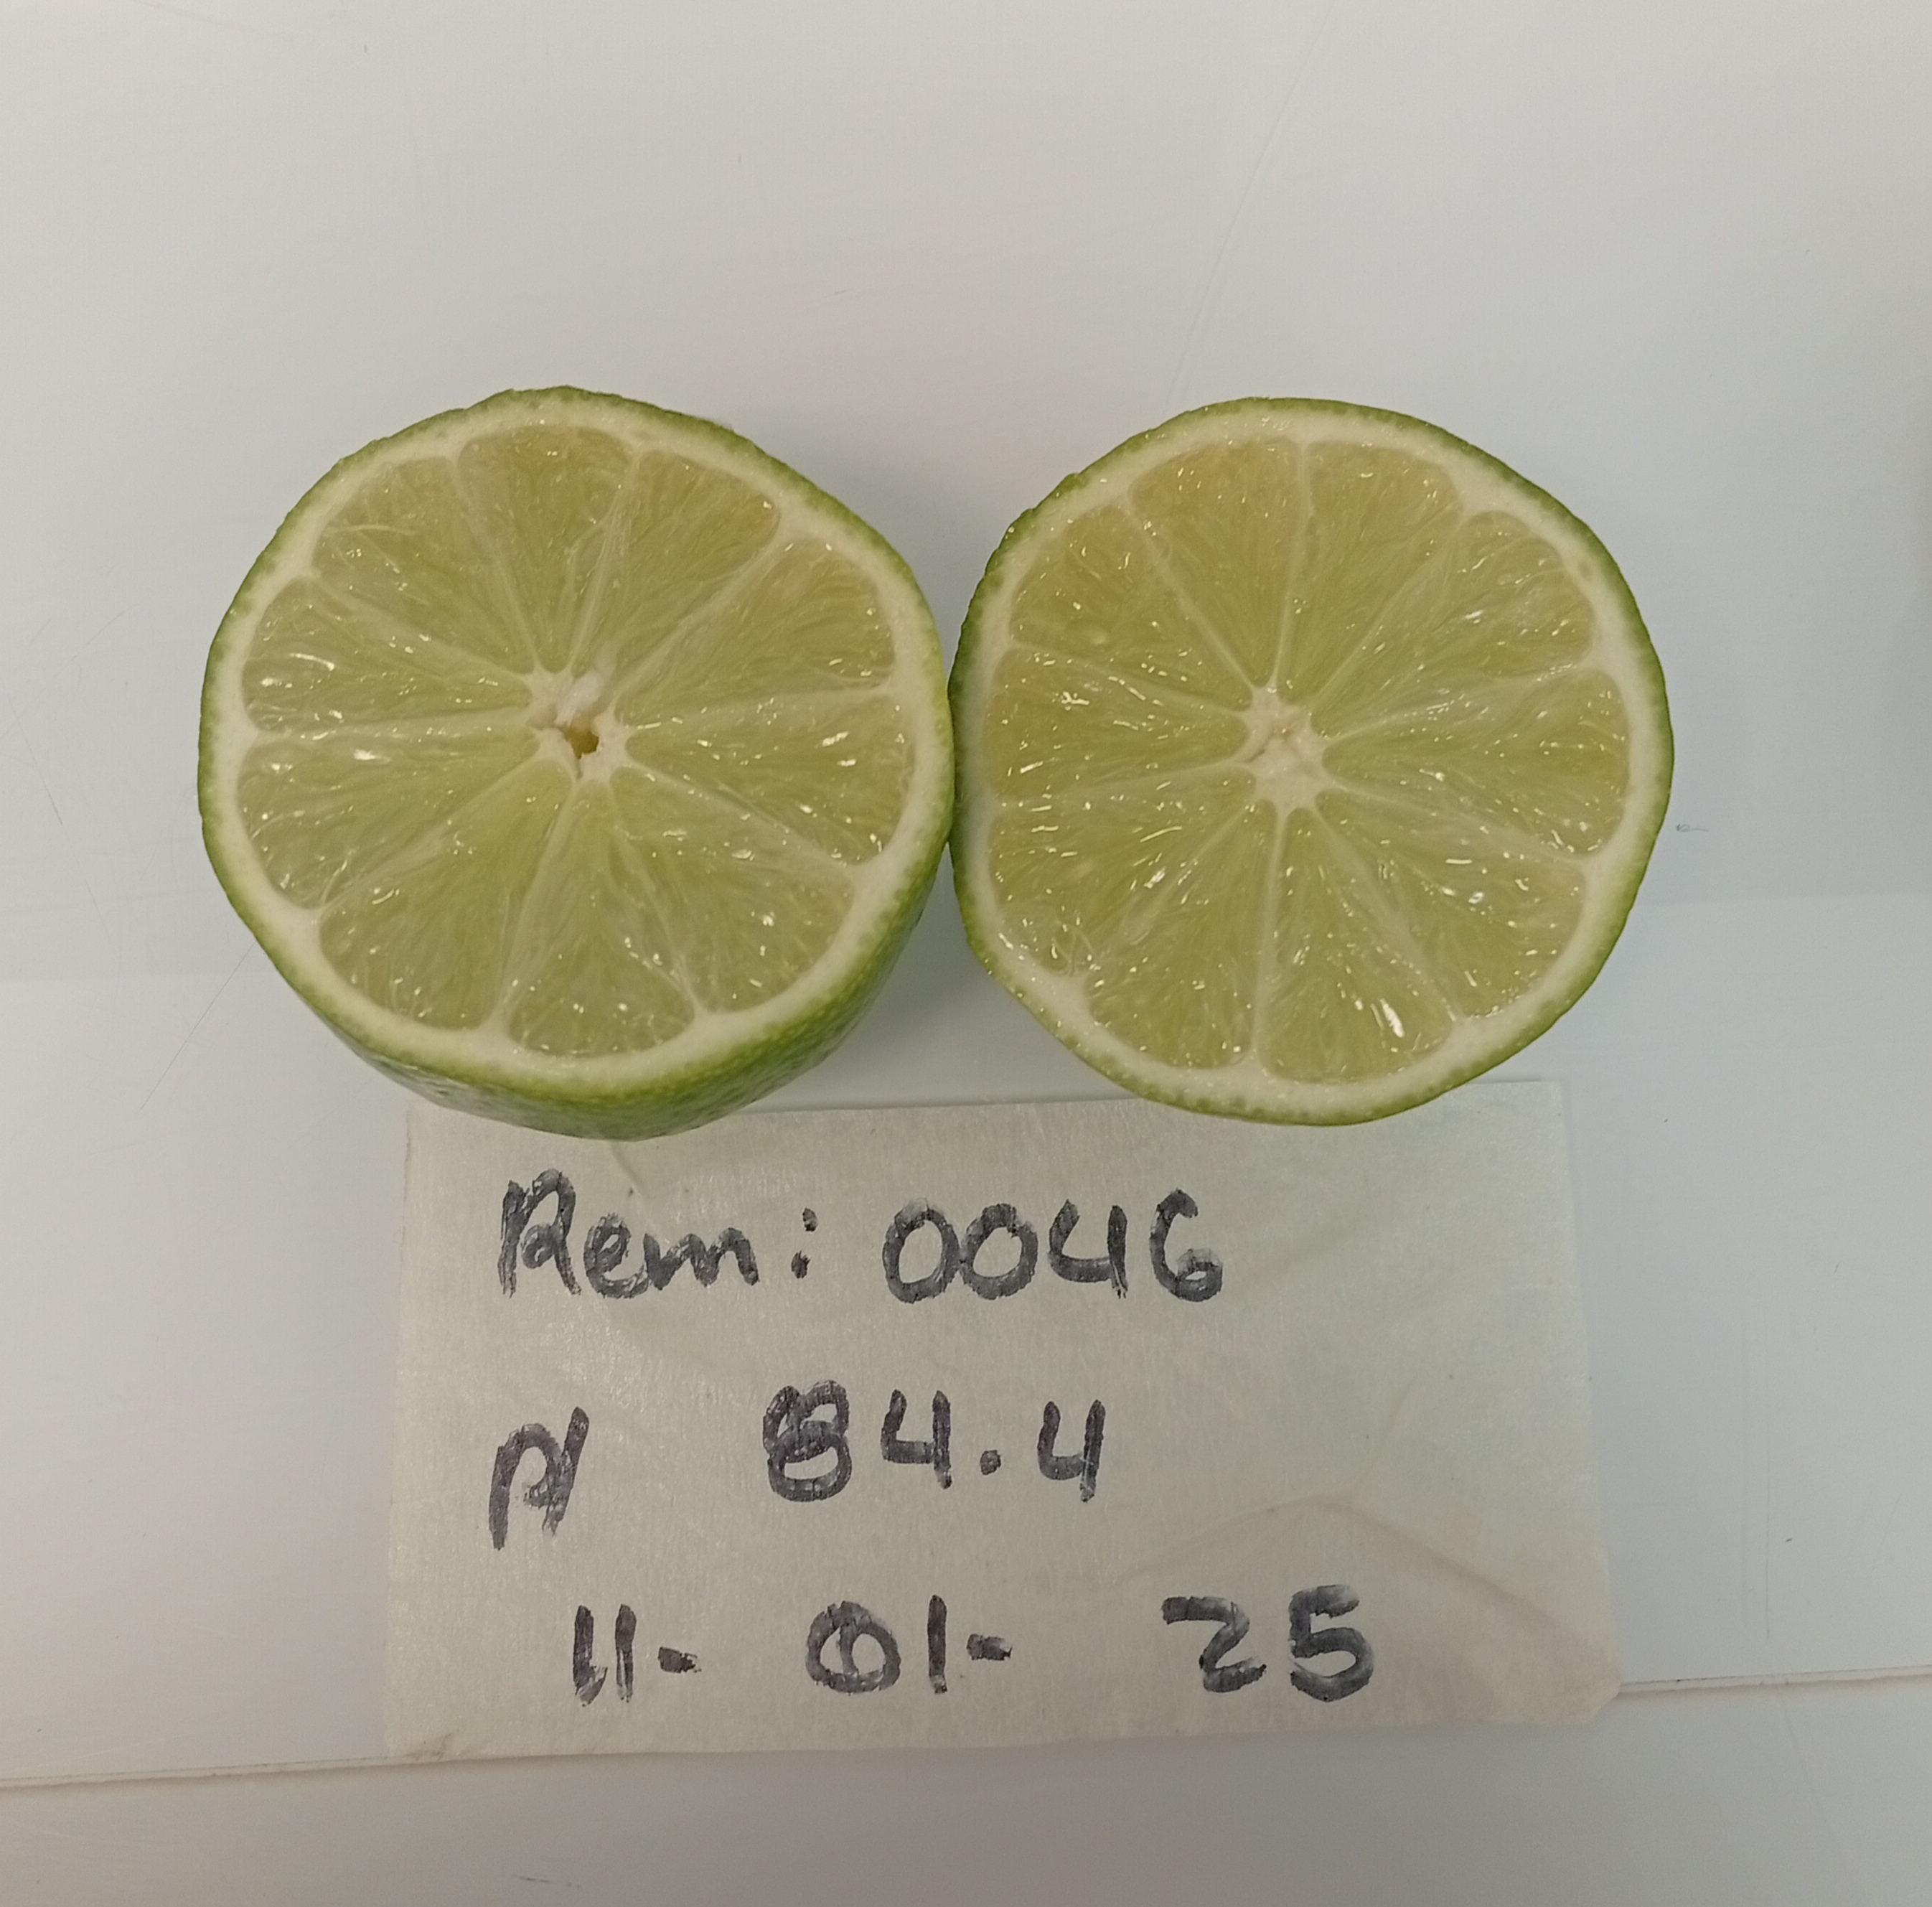 Rem: 0046
P/ 84.4
11- 01- 25